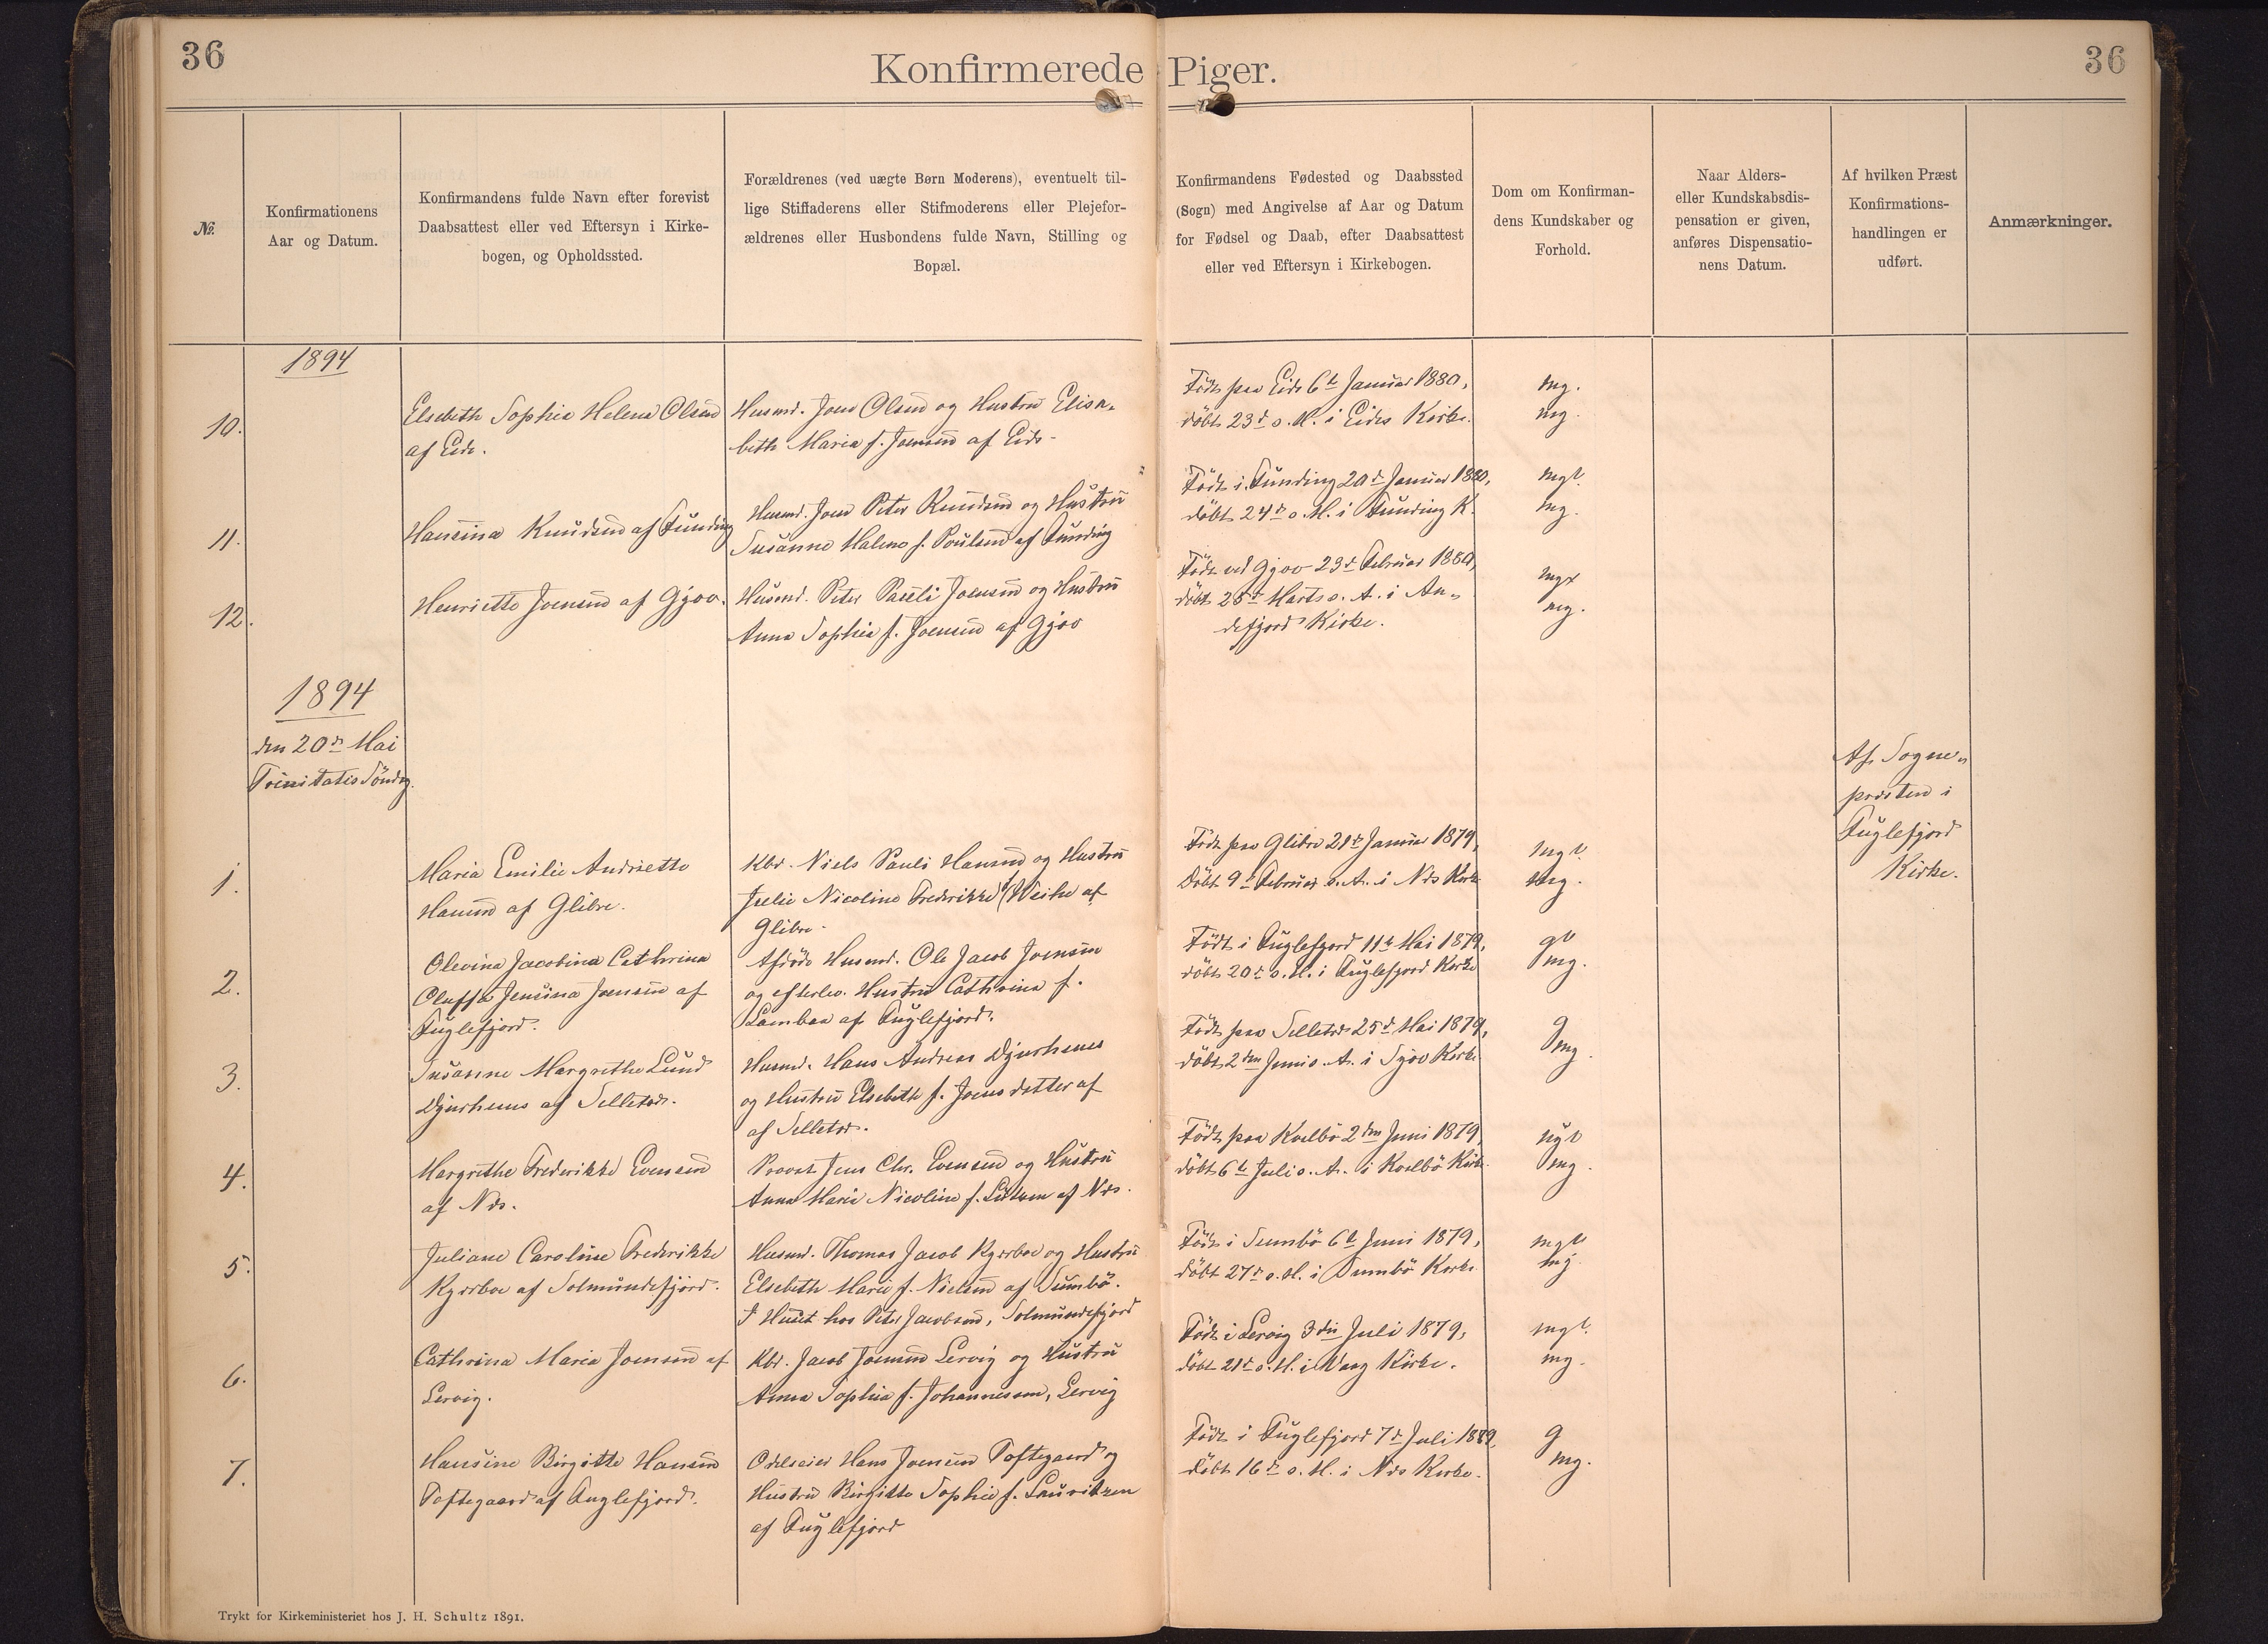 36
Konfirmerede Piger.
36
№.
Konfirmationens
Aar og Datum.
Konfirmandens fulde Navn efter forevist
Daabsattest eller ved Eftersyn i Kirke-
bogen, og Opholdssted.
Forældrenes (ved uægte Børn Moderens), eventuelt til-
lige Stiffaderens eller Stifmoderens eller Plejefor-
ældrenes eller Husbondens fulde Navn, Stilling og
Bopæl.
Konfirmandens Fødested og Daabssted
(Sogn) med Angivelse af Aar og Datum
for Fødsel og Daab, efter Daabsattest
eller ved Eftersyn i Kirkebogen.
Dom om Konfirman-
dens Kundskaber og
Forhold.
Naar Alders-
eller Kundskabsdis-
pensation er given,
anføres Dispensatio-
nens Datum.
Af hvilken Præst
Konfirmations-
handlingen er
udført.
Anmærkninger.
1894
10.
Elsebeth Sophie Helene Olsen
af Eide.
Husmd. Joen Olsen og Hustru Elisa-
beth Maria f. Joensen af Eide.
Født paa Eide 6te Januar 1880,
döbt 23de s. M. i Eides Kirke.
mg.
mg.
11.
Hansina Knudsen af Funding
Husmd. Joen Peter Knudsen og Hustru
Susanne Malene f. Poulsen af Funding
Födt i Funding 20de Januar 1880,
döbt 24de s. M. i Funding K.
mgt.
mg.
12.
Henriette Joensen af Gjov.
Husmd. Peter Pauli Joensen og Hustru
Anna Sophie f. Joensen af Gjov
Födt ved Gjov 23de Februar 1880,
döbt 28de Marts s. A. i An-
defjord Kirke.
mg
mg.
1894
den 20de Mai
Trinitatis Söndag.
Af Sogne-
præsten i
Fuglefjord
Kirke.
1.
Maria Emilie Andriette
Hansen af Glibre.
Kbd. Niels Pauli Hansen og Hustru
Julie Nicoline Frederikke f. Weihe af
Glibre.
Födt paa Glibre 21de Januar 1879,
Döbt 9de Februar s. A. i Næs Kirke
mgt.
mg.
2.
Olevina Jacobina Cathrina
Oluffa Jensina Joensen af
Fuglefjord.
Afdöde Husmd. Ole Jacob Joensen
og efterlev. Hustru Cathrina f.
Lambaa af Fuglefjord.
Födt i Fuglefjord 11te Mai 1879,
döbt 20de s. M. i Fuglefjord Kirke
gt
mg.
3.
Susanne Margrethe Lund
Djurhuus af Selletræ.
Husmd. Hans Andreas Djurhuus
og Hustru Elsebeth f. Joensdatter af
af Selletræ.
Födt paa Selletræ 25de Mai 1879,
döbt 2den Juni s. A. i Gjov Kirke
g
mg.
4.
Margrethe Frederikke Evensen
af Næs.
Provst Jens Chr. Evensen og Hustru
Anna Marie Nicoline f. Lützen af Næs.
Födt paa Kvalbö 2den Juni 1879,
döbt 6te Juli s. A. i Kvalbö Kirke.
ugt
mg.
5.
Juliane Caroline Frederikke
Kjærbo af Solmundefjord.
Husmd. Thomas Jacob Kjærbo og Hustru
Elsebeth Marie f. Nielsen af Sumbö.
I Huset hos Peter Jacobsen, Solmundefjord
Födt i Sumbö 6te Juni 1879,
döbt 27de s. M. i Sumbö Kirke
mgt
mg.
6.
Cathrina Maria Joensen af
Lervig.
Kbd. Jacob Joensen Lervig og Hustru
Anna Sophia f. Johannesen, Lervig
Födt i Lervig 3die Juli 1879,
döbt 21de s. M. i Vaag Kirke.
mgt.
mg.
7.
Hansine Birgitte Hansen
Toftegaard af Fuglefjord.
Odelseier Hans Joensen Toftegaard og
Hustru Birgitte Sophie f. Lauritzen
af Fuglefjord
Födt i Fuglefjord 7de Juli 1879,
döbt 16de s. M. i Næs Kirke.
g
mg.
Trykt for Kirkeministeriet hos J. H. Schultz 1891.